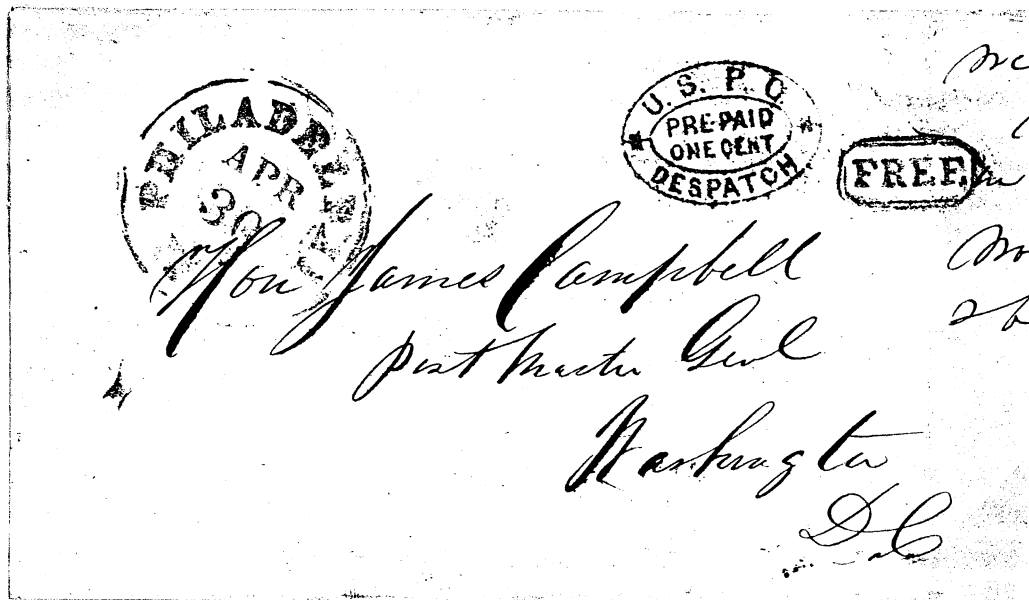 PHILADELPHIA
APR
30
U.S.P.O.
PRE-PAID
ONE CENT
DESPATCH
FREE
Hon James Campbell
Post Master Genl
Washington
D.C